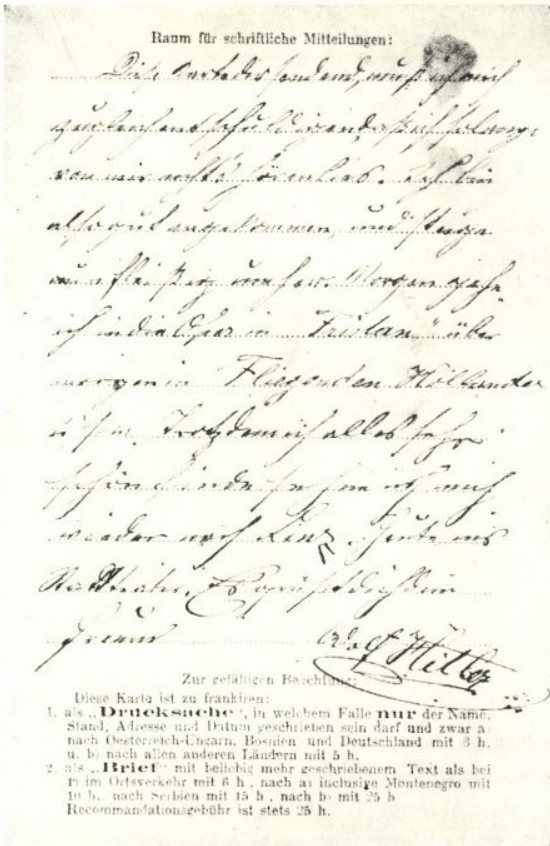 Raum für schriftliche Mitteilungen:
Diese Karte dir sendend, muß ich mich
zugleich entschuldigen, daß ich solange
von mir nichts hören lies. Ich bin
also gut angekommen, und steige
nun fleißig umher. Morgen gehe
ich in die Oper in „Tristan" über
morgen in Fliegenden Holländer
u. s. w. Trotzdem ich alles sehr
schön finde sehne ich mich
wieder nach Linz. Heute ins
Stadtteater. Es grüßt dich dein
Freund Adolf Hitler
Zur gefälligen Beachtung:
Diese Karte ist zu frankiren:
1. als „Drucksache", in welchem Falle nur der Name,
Stand, Adresse und Datum geschrieben sein darf und zwar a)
nach Oesterreich-Ungarn, Bosnien und Deutschland mit 3 h,
u. b) nach allen anderen Ländern mit 5 h.
2. als „Brief" mit beliebig mehr geschriebenem Text als bei
1) im Ortsverkehr mit 6 h, nach a) inclusive Montenegro mit
10 h., nach Serbien mit 15 h, nach b) mit 25 h
Recommandationsgebühr ist stets 25 h.